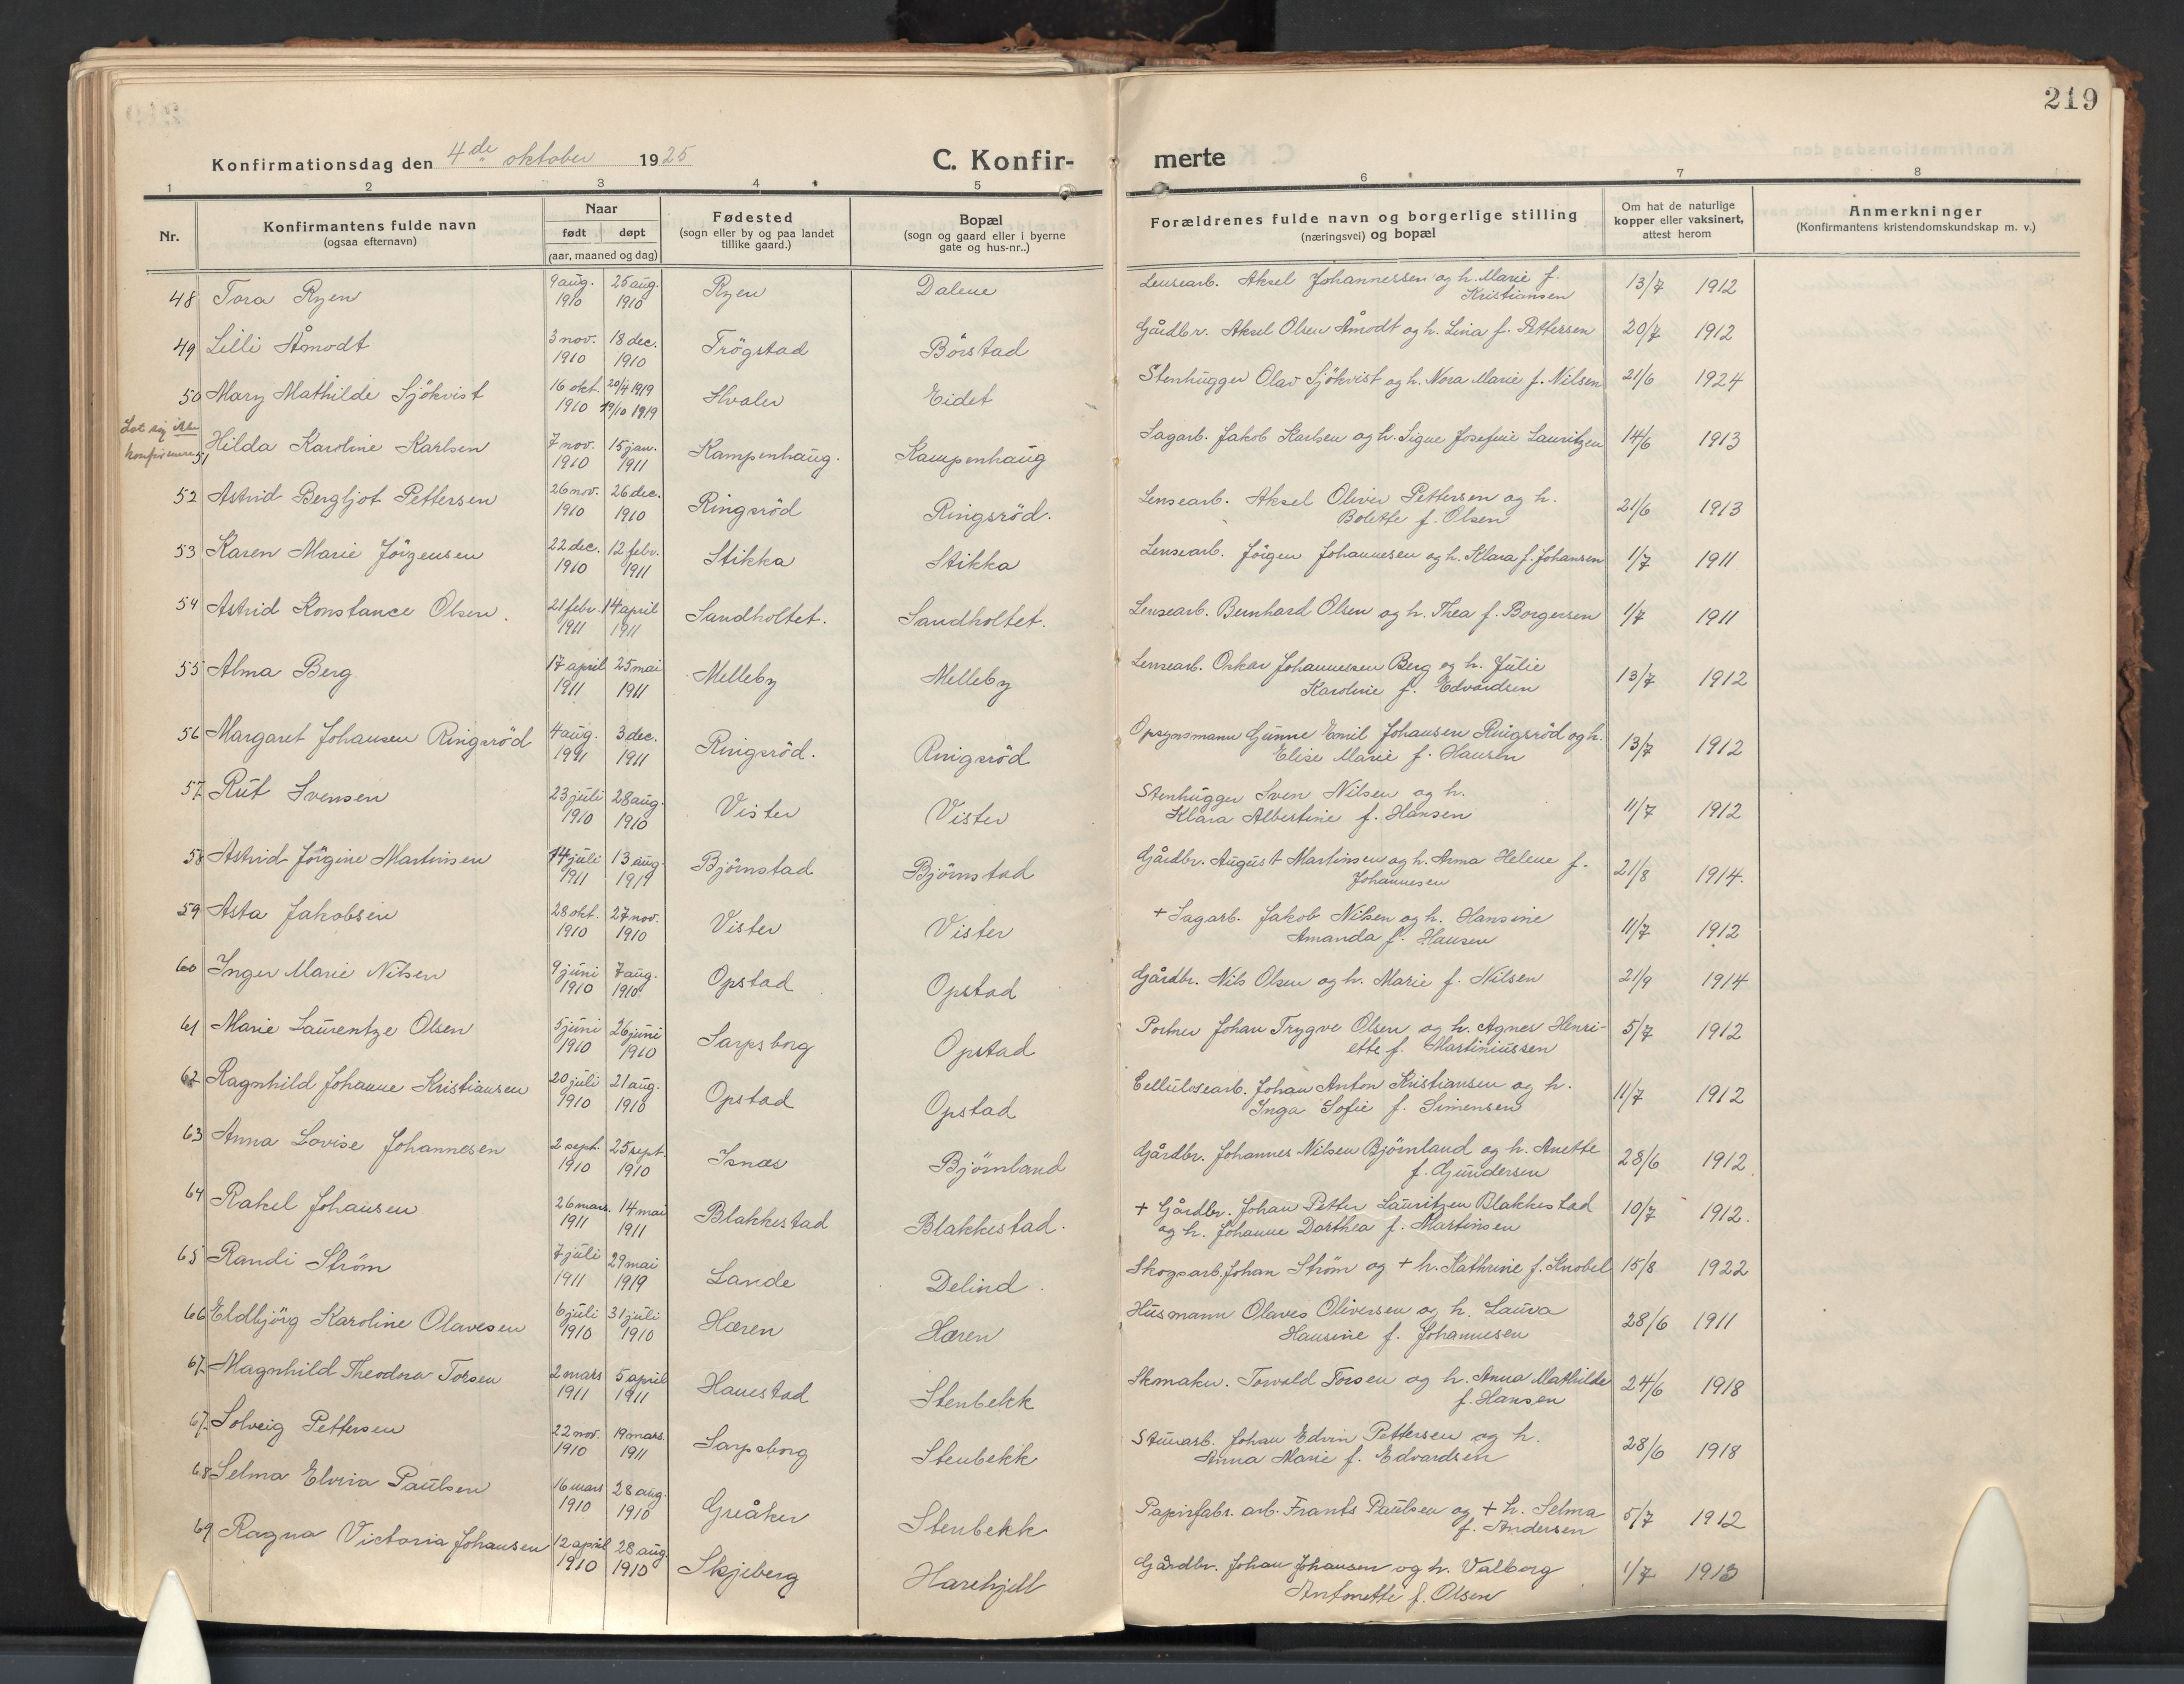 219
Konfirmationsdag den 4de oktober 1925
C. Konfir-
merte
1 2 3 4 5 6 7 8
Nr.
Konfirmantens fulde navn
(ogsaa efternavn)
Naar
født døpt
(aar, maaned og dag)
Fødested
(sogn eller by og paa landet
tillike gaard.)
Bopæl
(sogn og gaard eller i byerne
gate og hus-nr..)
Forældrenes fulde navn og borgerlige stilling
(næringsvei) og bopæl
Om hat de naturlige
kopper eller vaksinert,
attest herom
Anmerkninger
(Konfirmantens kristendomskundskap m. v.)
48 Tora Ryen 9 aug. 25 aug. Ryen Dalene Lensearb. Aksel Johannessen og h. Marie f. 13/7 1912
1910 1910 Kristiansen
49 Lilli Åmodt 3 nov. 18 dec. Trögstad Börstad Gårdbr. Aksel Olsen Åmodt og h. Lina f. Pettersen 20/7 1912
1910 1910
50 Mary Mathilde Sjökvist 16 okt. 20/4 1919 Hvaler Eidet Stenhugger Olav Sjökvist og h. Nora Marie f. Nilsen 21/6 1924
1910 19/10 1919
Lot sig ikke
konfirmere
51 Hilda Karoline Karlsen 7 nov. 15 jan. Kampenhaug. Kampenhaug Sagarb. Jakob Karlsen og h. Signe Josefine Lauritzen 14/6 1913
1910 1911
52 Astrid Bergljot Pettersen 26 nov. 26 dec. Ringsröd Ringsröd. Lensearb. Aksel Oliver Pettersen og h. 21/6 1913
1910 1910 Bolette f. Olsen
53 Karen Marie Jörgensen 22 dec. 12 febr. Stikka Stikka Lensearb. Jörgen Johannesen og h. Klara f. Johansen 1/7 1911
1910 1911
54 Astrid Konstance Olsen. 21 febr. 14 april Sandholtet. Sandholtet. Lensearb. Bernhard Olsen og h. Thea f. Borgersen 1/7 1911
1911 1911
55 Alma Berg 17 april 25 mai Melleby Melleby Lensearb. Oskar Johannessen Berg og h. Julie 13/7 1912
1911 1911 Karoline f. Edvardsen
56 Margaret Johansen Ringsröd 4 aug. 3 dec. Ringsröd. Ringsröd Opsynsmann Gunne Emil Johansen Ringsröd og h. 13/7 1912
1911 1911 Elise Marie f. Hansen
57 Rut Svensen 23 juli 28 aug. Vister Vister Stenhugger Sven Nilsen og h. 11/7 1912
1910 1910 Klara Albertine f. Hansen
58 Astrid Jörgine Martinsen 14 juli 13 aug. Björnstad Björnstad Gårdbr. August Martinsen og h. Anna Helene f. 21/8 1914.
1911 1911 Johannesen
59 Asta Jakobsen 28 okt. 27 nov. Vister Vister + Sagarb. Jakob Nilsen og h. Hansine 11/7 1912
1910 1910 Amanda f. Hansen
60 Inger Marie Nilsen 9 juni 7 aug. Opstad Opstad Gårdbr. Nils Olsen og h. Marie f. Nilsen 21/9 1914
1910 1910
61 Marie Laurentze Olsen 5 juni 26 juni Sarpsborg Opstad Portner Johan Trygve Olsen og h. Agnes Henri- 5/7 1912
1910 1910 ette f. Martiniussen
62 Ragnhild Johanne Kristiansen 20 juli 21 aug. Opstad Opstad Cellulosearb. Johan Anton Kristiansen og h. 11/7 1912
1910 1910 Inga Sofie f. Simensen
63 Anna Lovise Johannesen 2 sept. 25 sept. Isnæs Björnland Gårdbr. Johannes Nilsen Björnland og h. Anette 28/6 1912.
1910 1910 f. Gundersen
64 Rakel Johansen 26 mars. 14 mai Blakkestad Blakkestad. + Gårdbr. Johan Petter Lauritzen Blakkestad 10/7 1912.
1911 1911 og h. Johanne Dorthea f. Martinsen
65 Randi Strøm 7 juli 29 mai Lande Delind. Skogsarb. Johan Strøm og + h. Kathrine f. Knobel 15/8 1922
1911 1919
66 Eldbjörg Karoline Olavesen 6 juli 31 juli Hæren Hæren Husmann Olaves Oliversen og h. Laura 28/6 1911
1910 1910 Hansine f. Johannesen
67. Magnhild Theodora Torsen 2 mars 5 april Hauestad Stenbekk Skomaker. Torvald Torsen og h. Anna Mathilde 24/6 1918
1911 1911 f. Hansen
67. Solveig Pettersen 22 nov. 19 mars. Sarpsborg Stenbekk Stuarb. Johan Edvin Pettersen og h. 28/6 1918
1910 1911 Anna Marie f. Edvardsen
68 Selma Elvira Paulsen 16 mars 28 aug. Greåker Stenbekk Papirfabr. arb. Frants Paulsen og + h. Selma 5/7 1912
1910 1910 f. Andersen
69 Ragna Victoria Johansen 12 april 28 aug. Skjeberg Harehjell Gårdbr. Johan Johansen og h. Valborg 1/7 1913
1910 1910 Antonette f. Olsen